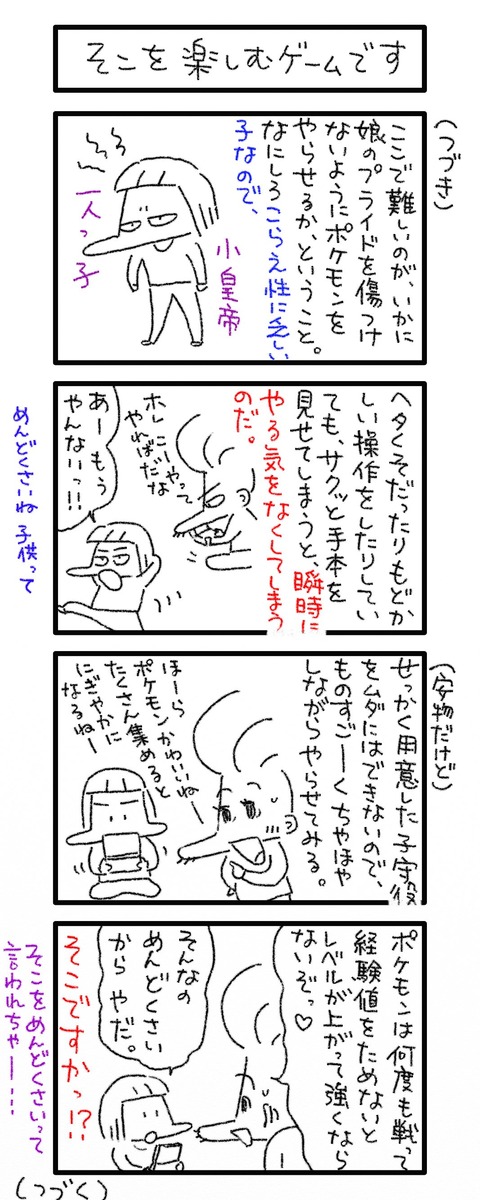 そこを楽しむゲームです
(つづき)
ここで難しいのが、いかに
娘のプライドを傷つけ
ないようにポケモンを
やらせるか、ということ。
なにしろこらえ性に乏しい
子なので、
小皇帝
一人っ子
ヘタくそだったりもどか
しい操作をしたりしてい
ても、サクッと手本を
見せてしまうと、瞬時に
やる気をなくしてしまう
のだ。
ホレ、こーやって
やればだな
あーもう
やんないっ!!
めんどくさいね子供って
(安物だけど)
せっかく用意した子守役
をムダにはできないので、
ものすごーくちやほや
しながらやらせてみる。
ほーら
ポケモンかわいいねー
たくさん集めると
にぎやかに
なるねー
ポケモンは何度も戦って
経験値をためないと
レベルが上がって強くなら
ないぞっ♡
そんなの
めんどくさい
から やだ。
そこですかっ!?
そこをめんどくさいって
言われちゃー…
(つづく)